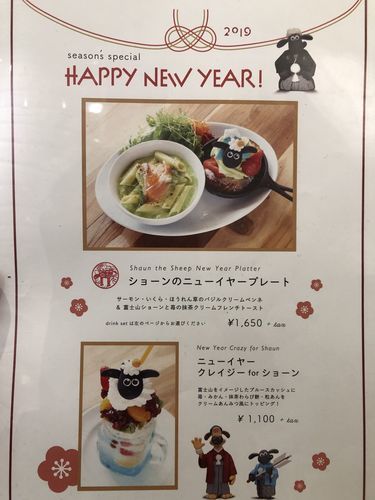 2019
season's special
HAPPY NEW YEAR!
Shaun the Sheep New Year Platter
ショーンのニューイヤープレート
サーモン・いくら・ほうれん草のバジルクリームペンネ
& 富士山ショーンと苺の抹茶クリームフレンチトースト
drink set は左のページからお選びください
¥1,650 + tax
New Year Crazy for Shaun
ニューイヤー
クレイジー for ショーン
富士山をイメージしたブルースカッシュに
苺・みかん・抹茶わらび餅・粒あんを
クリームあんみつ風にトッピング!
¥1,100 + tax